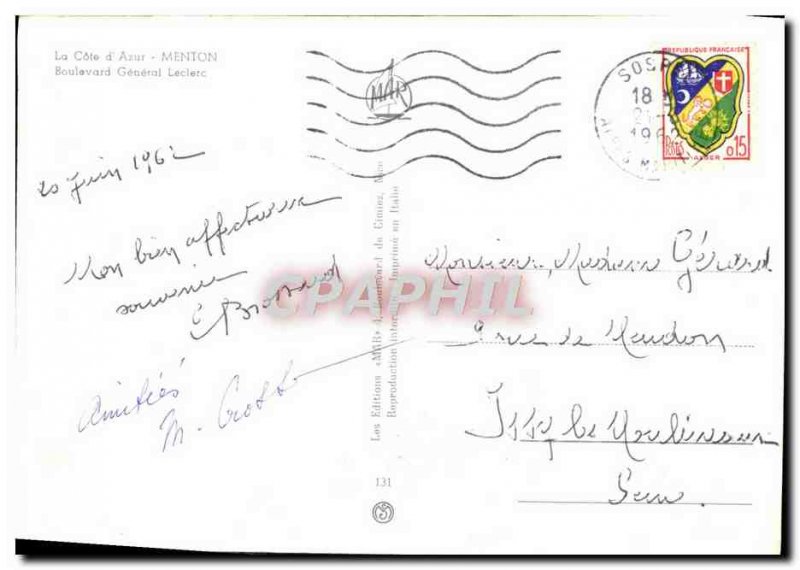 La Côte d'Azur - MENTON
Boulevard Général Leclerc
MAR
SOSP
18
196
REPUBLIQUE FRANÇAISE
Postes
0,15
ALGER
20 Juin 1962
Mon bien affectueux
souvenir
Amitiés
M.
CPAPHIL
Les Editions «MAR» Boulevard de Cimiez, Nice
Reproduction interdite Imprimé en Italie
131
Monsieur, Madame Gérard
rue de Meudon
Issy les Moulineaux
Seine